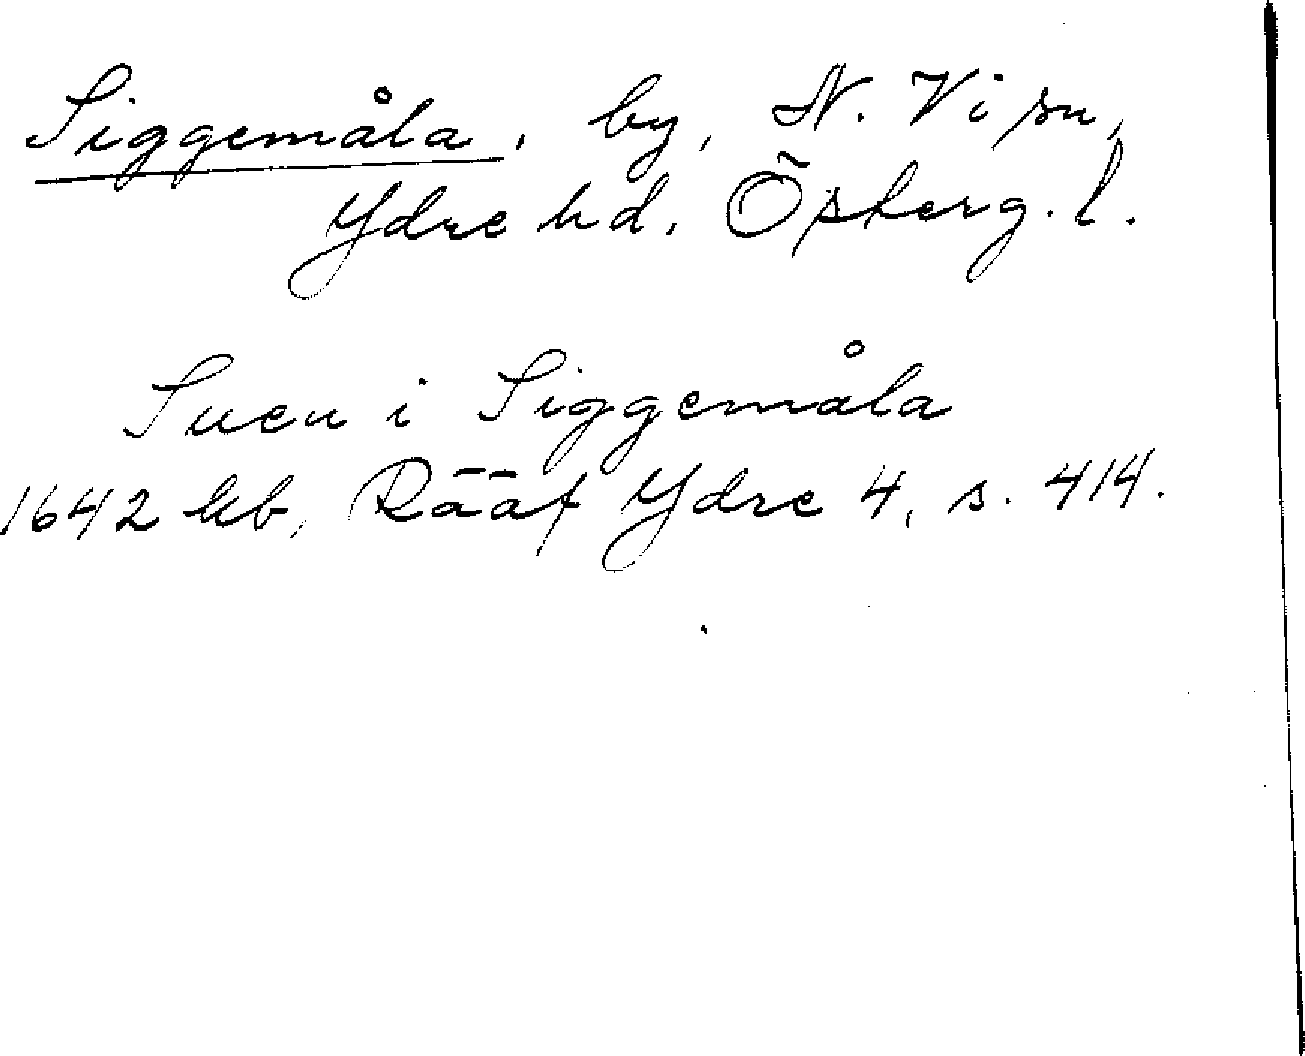 Siggemåla, by, N. Vi sn,
Ydre hd. Österg. l.
Suen i Siggemåla
1642 kb, Rääf Ydre 4, s. 414.